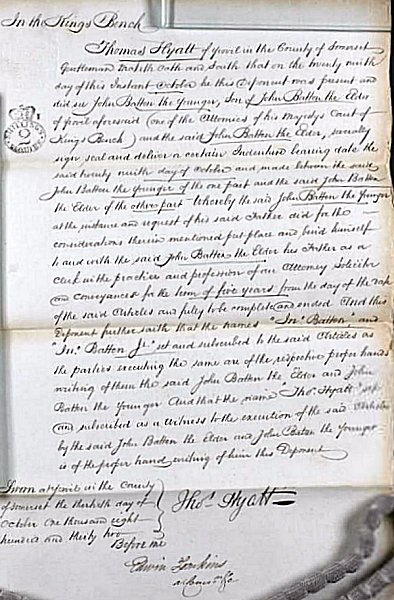 In the Kings Bench
Thomas Hyatt of Yeovil in the County of Somerset
Gentleman maketh Oath and Saith that on the twenty ninth
day of this Instant October he this Deponent was present and
did see John Batten the Younger, Son of John Batten the Elder
of Yeovil aforesaid (one of the Attornies of his Majestys Court of
Kings Bench) and the said John Batten the Elder, severally
sign, seal and deliver a certain Indenture bearing date the
said twenty ninth day of October and made between the said
John Batten the Younger of the one part and the said John Batten
the Elder of the other part whereby the said John Batten the Younger
at the instance and request of his said Father did for the
considerations therein mentioned put place and bind himself
to and with the said John Batten the Elder his Father as a
Clerk in the practice and profession of an Attorney Solicitor
and Conveyancer for the term of five years from the day of the date
of the said Articles and fully to be complete and ended And this
Deponent further saith that the names "Jno. Batten" and
"Jno. Batten Jr." set and subscribed to the said Articles as
the parties executing the same are of the respective proper hands
writing of them the said John Batten the Elder and John
Batten the Younger And that the name "Thos. Hyatt" set
and subscribed as a witness to the execution of the said Articles
by the said John Batten the Elder and John Batten the Younger
is of the proper hand writing of him this Deponent
Sworn at Yeovil in the County
of Somerset the thirtieth day of
October One thousand eight
hundred and thirty two
Before me
Thos. Hyatt
Edwin Tomkins